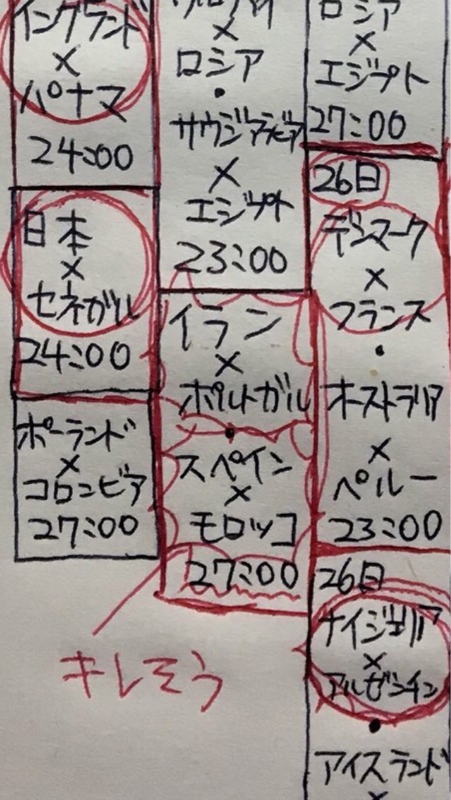 イングランド
×
パナマ
24:00
日本
×
セネガル
24:00
ポーランド
×
コロンビア
27:00
×
ロシア
・
サウジアラビア
×
エジプト
23:00
イラン
×
ポルトガル
・
スペイン
×
モロッコ
27:00
キレそう
ロシア
×
エジプト
27:00
26日
デンマーク
×
フランス
・
オーストラリア
×
ペルー
23:00
26日
ナイジェリア
×
アルゼンチン
・
アイスランド
×